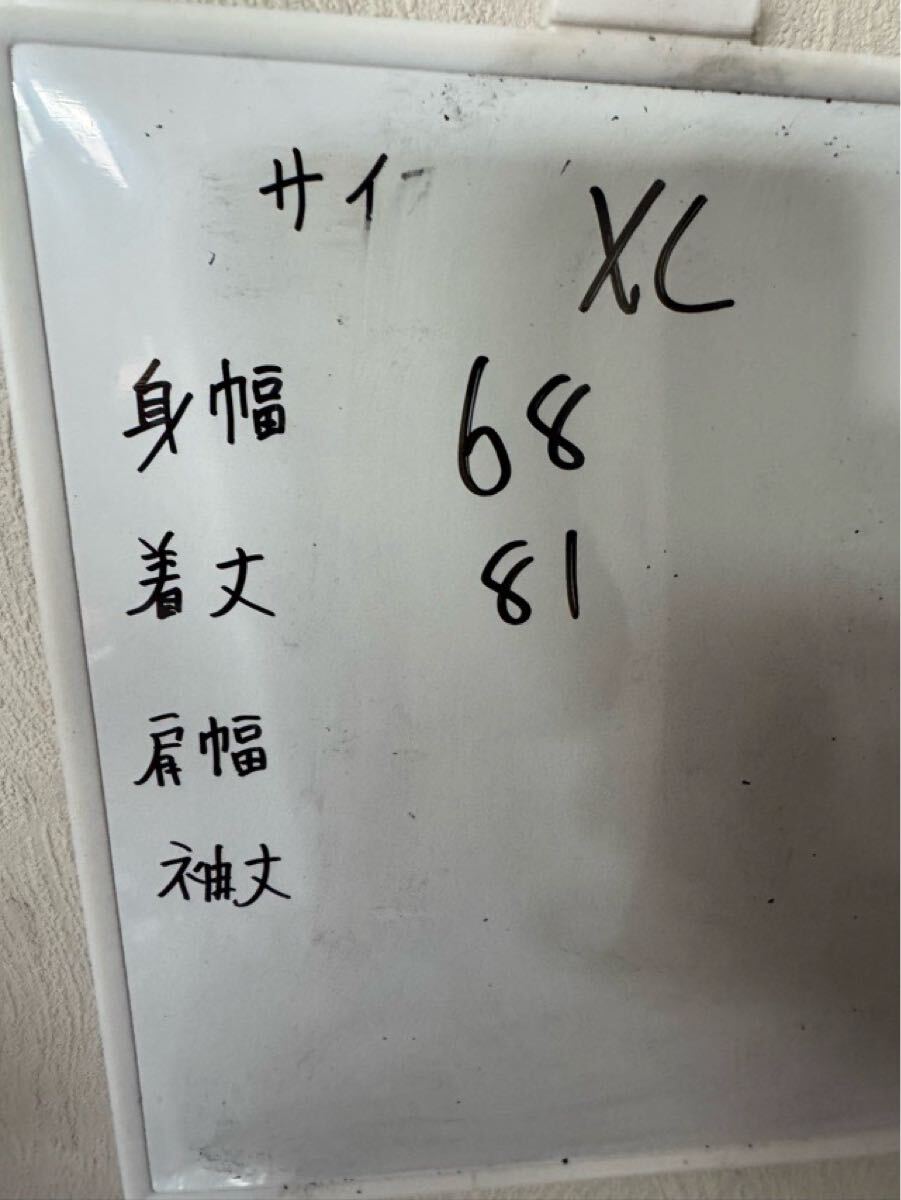 サイ XL
身幅 68
着丈 81
肩幅
袖丈